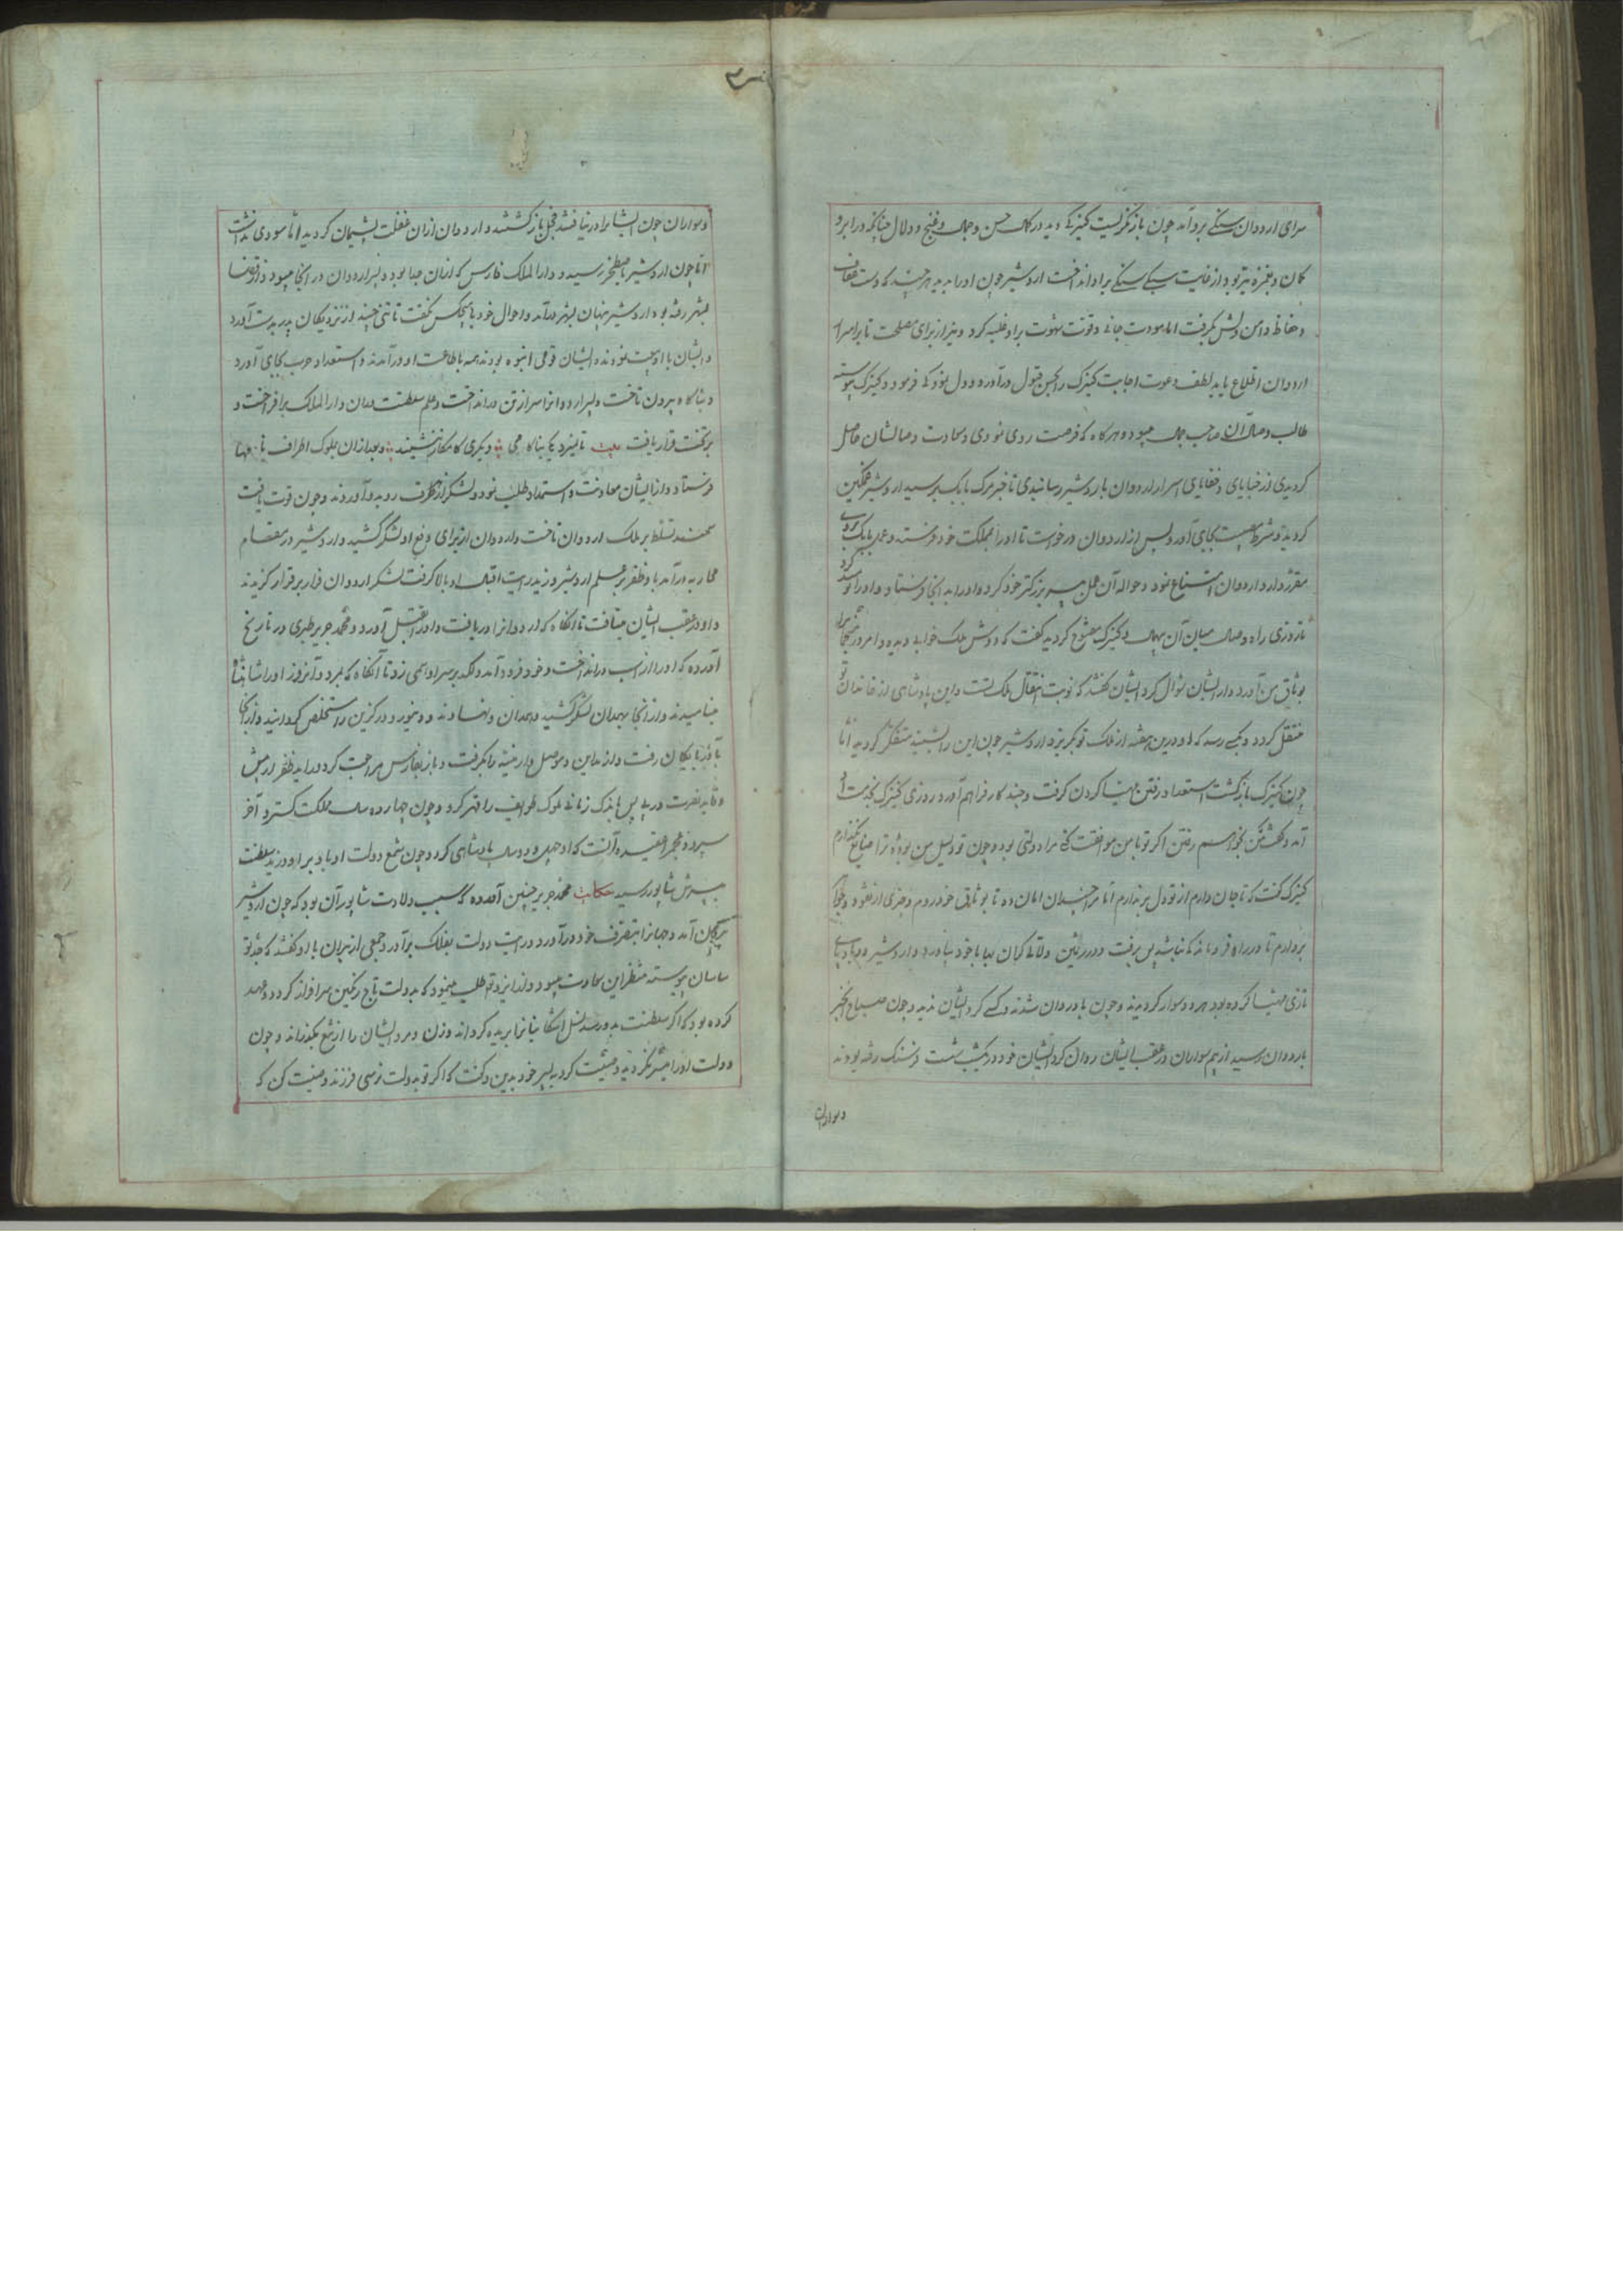 سرای اردوان سنگی برو آمد چون باز نگریست کنیزکی دید در کمال حسن و جمال و غنج و دلال چنانکه در ابرو
کمان و بغمزه تیر بود از غایت سنگی براو انداخت اردشیر چون اورا بدید هر چند که دست عفاف
و حفاظ دامن دلش بگرفت اما قوت شهوت براو غلبه کرد و نیز از برای مصلحت تا بر اسرار
اردوان اطلاع یابد لطف دعوت اجابت کنیزک را بحسن قبول درآورد و کنیزک پیوسته
طالب وصال آن صاحب جمال میبود و هر کاه که فرصت روی نمودی و سعادت وصالشان حاصل
کردیدی از خبایای و خفایای اسرار اردوان باردشیر رسانیدی تا خبر مرک بابک برسید اردشیر غمکین
کردید و شرط مصیبت بجای آورد پس از اردوان درخواست تا اورا بمملکت خود فرستد و عمل بابک بروی
مقرر دارد اردوان امتناع نمود و حواله آن عمل بپسر بزرکتر خود کرد و اورا بدانجا فرستاد
تا روزی راه وصال میان آن کنیزک مفتوح کردید گفت که دوش ملک خوابی دیده و امروز
بوثاق من آورد و از ایشان سؤال کرد ایشان گفتند که نوبت انتقال ملک تست و این پادشاهی از خاندان تو
منتقل کردد و بکسی رسد که او درین هفته از ملک تو بگریزد اردشیر چون این را بشنید متفکر کردید اما
چون کنیزک بازگشت استعداد رفتن مهیا کردن گرفت و چند کار فراهم آورد روزی کنیزک بخدمت او
آمد و گفت من بخواهم رفتن اگر تو با من موافقت کنی مرا دولتی بود
کنیزک گفت که تا جان دارم از تو دل برندارم اما مرا چندان امان ده تا بوثاق خود روم و چیزی از نقود و
بردارم تا در راه فرو نمانیم پس برفت و در ثمین و لآلی گران بها با خود بیاورد و اردشیر دو بادپای
تازی مهیا کرده بود هر دو سوار کردیدند و چون باد روان شدند و کسی کرد ایشان ندید و چون صباح خبر
باردوان رسید از بیم سواران در عقب ایشان روان کرد ایشان خود در یکشب شصت فرسنک رفته بودند
و سواران
و سواران چون ایشانرا در نیافتند خجل باز کشتند و اردوان از آن غفلت پشیمان کردید اما سودی نداشت
اما چون اردشیر باصطخر رسید و دارالملک فارس که از آن جدا بود و پسر اردوان در آنجا میبود و از قضا
بشهر رفته بود اردشیر پنهان بشهر درآمد و احوال خود با هیچکس نگفت تا تنی چند از نزدیکان پدر بدست آورد
و ایشان با او بیعت نمودند و ایشان قومی انبوه بودند همه باطاعت او درآمدند و استعداد حرب بجای آورد
و بناکاه بیرون تاخت و پسر اردوانرا سر از تن درانداخت و علم سلطنت در آن دارالملک برافراخت و
بر تخت قرار یافت بیت تا نیزد یکی بناکامی دیگری کامکار ننشیند و بعد از آن بملوک اطراف نامهها
فرستاد و از ایشان معاونت و استمداد طلب نمود و لشکر از هر طرف رو بدو آوردند و چون قوت یافت
سمند تسلط بر ملک اردوان تاخت و اردوان از برای دفع او لشکر کشید و اردشیر در مقام
محاربه درآمد باد ظفر بر علم اردشیر وزید رایت اقبال او بالا گرفت لشکر اردوان فرار بر قرار گزیدند
و او در عقب ایشان میتافت تا آنکاه که اردوانرا دریافت و اورا بقتل آورد و محمد جریر طبری در تاریخ
آورده که اورا از اسب درانداخت و خود فرود آمد و لکد بر سر او همی زد تا آنکاه که بمرد و آنروز اورا شاهنشاه
بنامیدند و از آنجا بهمدان لشکر کشید و همدان و نهاوند و دینور و درگزین را مستخلص کردانید و از آنجا
باذربایکان رفت و از مداین و موصل و ارمنیه را بگرفت و باز بفارس مراجعت کرد و رائد ظفر از پیش
و قاید نصرت در پی پس باندک زمانی ملوک طوایف را قهر کرد و چون چهارده سال مملکت کسترد آخر
سپرد و محمد جریر آنست که او چهل و دو سال پادشاهی کرد و چون شمع دولت او باد برد او را ز سلطنت
بپسرش شاپور رسید حکایت محمد جریر چنین آورده که سبب ولادت شاپور آن بود که چون اردشیر
آمد و جهانرا بتصرف خود درآورد و رایت دولت بفلک برآورد جمعی از پیران با او گفتند که جد تو
ساسان پیوسته منتظر این سعادت میبود و از ایزد تو طلب مینمود که بدولت تاج و نکین سرافراز کردد و عهد
کرده بود که اگر سلطنت بدو رسد نسل اشکانیانرا بریده کرداند و زن و مرد ایشان را از تیغ بگذراند و چون
دولت اورا میسر نکردید وصیت کرد به پسر خود بدین و گفت که اگر تو بدولت نرسی فرزند را وصیت کن که